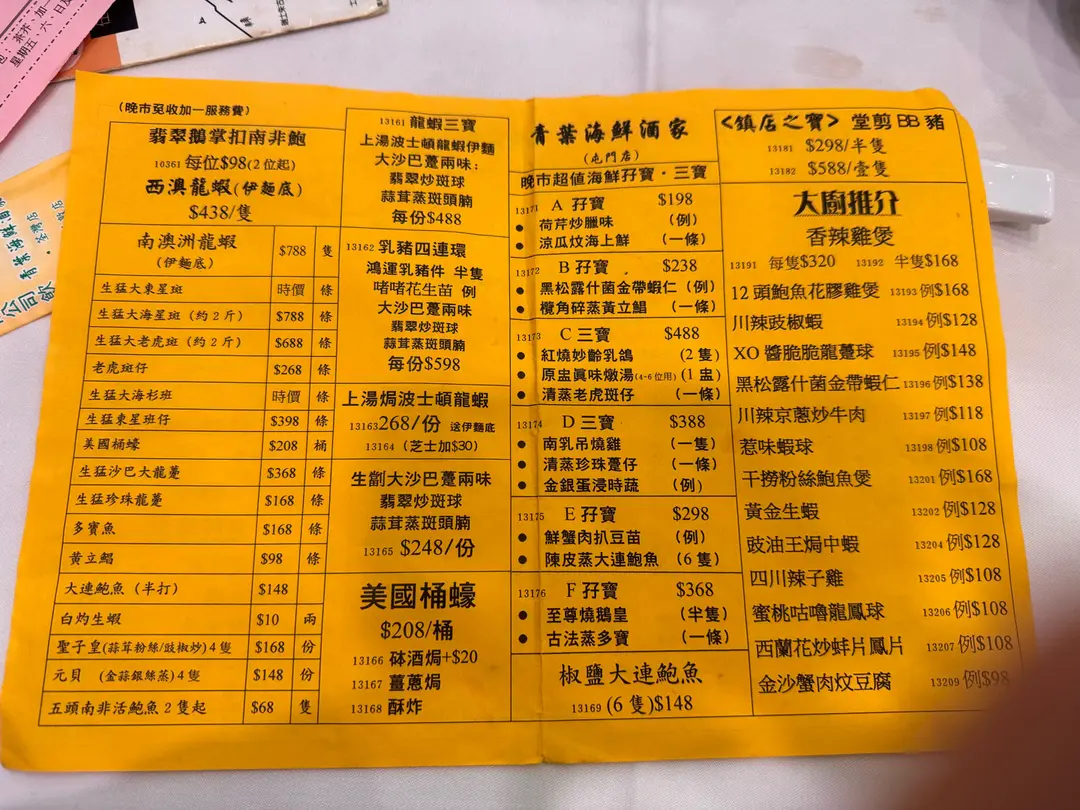 包：茶芥、加一
星期五、六、日及
（晚市免收加一服務費）
翡翠鵝掌扣南非鮑
10361 每位$98(2位起)
西澳龍蝦(伊麵底)
$438/隻
南澳洲龍蝦
(伊麵底)
$788 隻
生猛大東星斑 時價 條
生猛大海星斑（約2斤） $788 條
生猛大老虎斑（約2斤） $688 條
老虎斑仔 $268 條
生猛大海杉班 時價 條
生猛東星班仔 $398 條
美國桶蠔 $208 桶
生猛沙巴大龍躉 $368 條
生猛珍珠龍躉 $168 條
多寶魚 $168 條
黃立鯧 $98 條
大連鮑魚（半打） $148
白灼生蝦 $10 兩
聖子皇(蒜茸粉絲/豉椒炒)4隻 $168 份
元貝 (金蒜銀絲蒸)4隻 $148 份
五頭南非活鮑魚2隻起 $68 隻
13161 龍蝦三寶
上湯波士頓龍蝦伊麵
大沙巴躉兩味：
翡翠炒斑球
蒜茸蒸斑頭腩
每份$488
13162 乳豬四連環
鴻運乳豬件 半隻
啫啫花生苗 例
大沙巴躉兩味
翡翠炒斑球
蒜茸蒸斑頭腩
每份$598
上湯焗波士頓龍蝦
13163 268/份 送伊麵底
13164 (芝士加$30)
生劏大沙巴躉兩味
翡翠炒斑球
蒜茸蒸斑頭腩
13165 $248/份
美國桶蠔
$208/桶
13166 砵酒焗+$20
13167 薑蔥焗
13168 酥炸
青葉海鮮酒家
(屯門店)
晚市超值海鮮孖寶・三寶
13171 A 孖寶 $198
● 荷芹炒臘味 （例）
● 涼瓜炆海上鮮 （一條）
13172 B 孖寶 $238
● 黑松露什菌金帶蝦仁（例）
● 欖角碎蒸黃立鯧 （一條）
13173 C 三寶 $488
● 紅燒妙齡乳鴿 （2隻）
● 原盅眞味燉湯(4-6位用)（1盅）
● 清蒸老虎斑仔 （一條）
13174 D 三寶 $388
● 南乳吊燒雞 （一隻）
● 清蒸珍珠躉仔 （一條）
● 金銀蛋浸時蔬 （例）
13175 E 孖寶 $298
● 鮮蟹肉扒豆苗 （例）
● 陳皮蒸大連鮑魚（6隻）
13176 F 孖寶 $368
● 至尊燒鵝皇 （半隻）
● 古法蒸多寶 （一條）
椒鹽大連鮑魚
13169 (6隻)$148
<鎮店之寶> 堂剪BB豬
13181 $298/半隻
13182 $588/壹隻
大廚推介
香辣雞煲
13191 每隻$320 13192 半隻$168
12頭鮑魚花膠雞煲 13193 例$168
川辣豉椒蝦 13194 例$128
XO醬脆脆龍躉球 13195 例$148
黑松露什菌金帶蝦仁 13196 例$138
川辣京蔥炒牛肉 13197 例$118
惹味蝦球 13198 例$108
干撈粉絲鮑魚煲 13201 例$168
黃金生蝦 13202 例$128
豉油王焗中蝦 13204 例$128
四川辣子雞 13205 例$108
蜜桃咕嚕龍鳳球 13206 例$108
西蘭花炒蚌片鳳片 13207 例$108
金沙蟹肉炆豆腐 13209 例$98